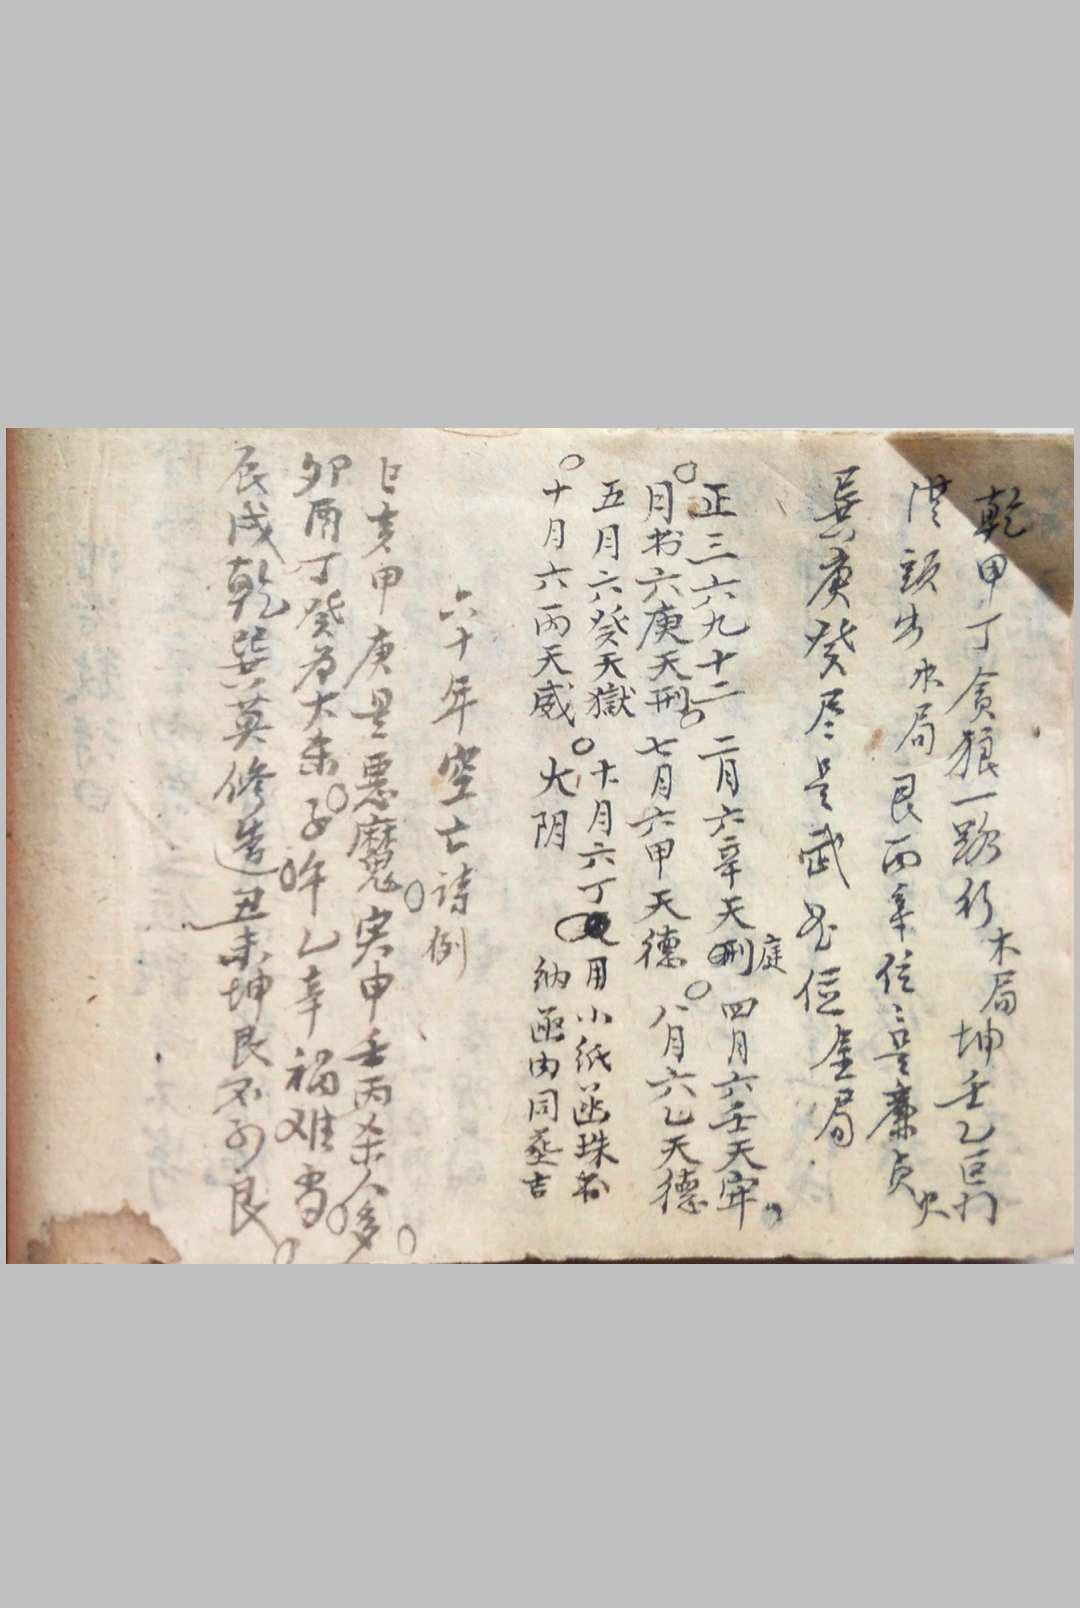 乾甲丁贪狼一路行木局坤壬乙巨门
頭出水局艮丙辛位々是廉贞火
巽庚癸尽是武曲位金局
正三六九十二 二月六辛天刑庭 四月六壬天牢
月书六庚天刑 七月六甲天德 八月六乙天德
五月六癸天獄 十月六丁 用小纸函珠书
十月六丙天威 大阴 纳函内同 吉
六十年空亡诗例
巳亥甲庚是悪魔寅申壬丙杀人多
卯酉丁癸为大杀子午乙辛福难当
辰戌乾巽莫修造丑未坤艮不为良